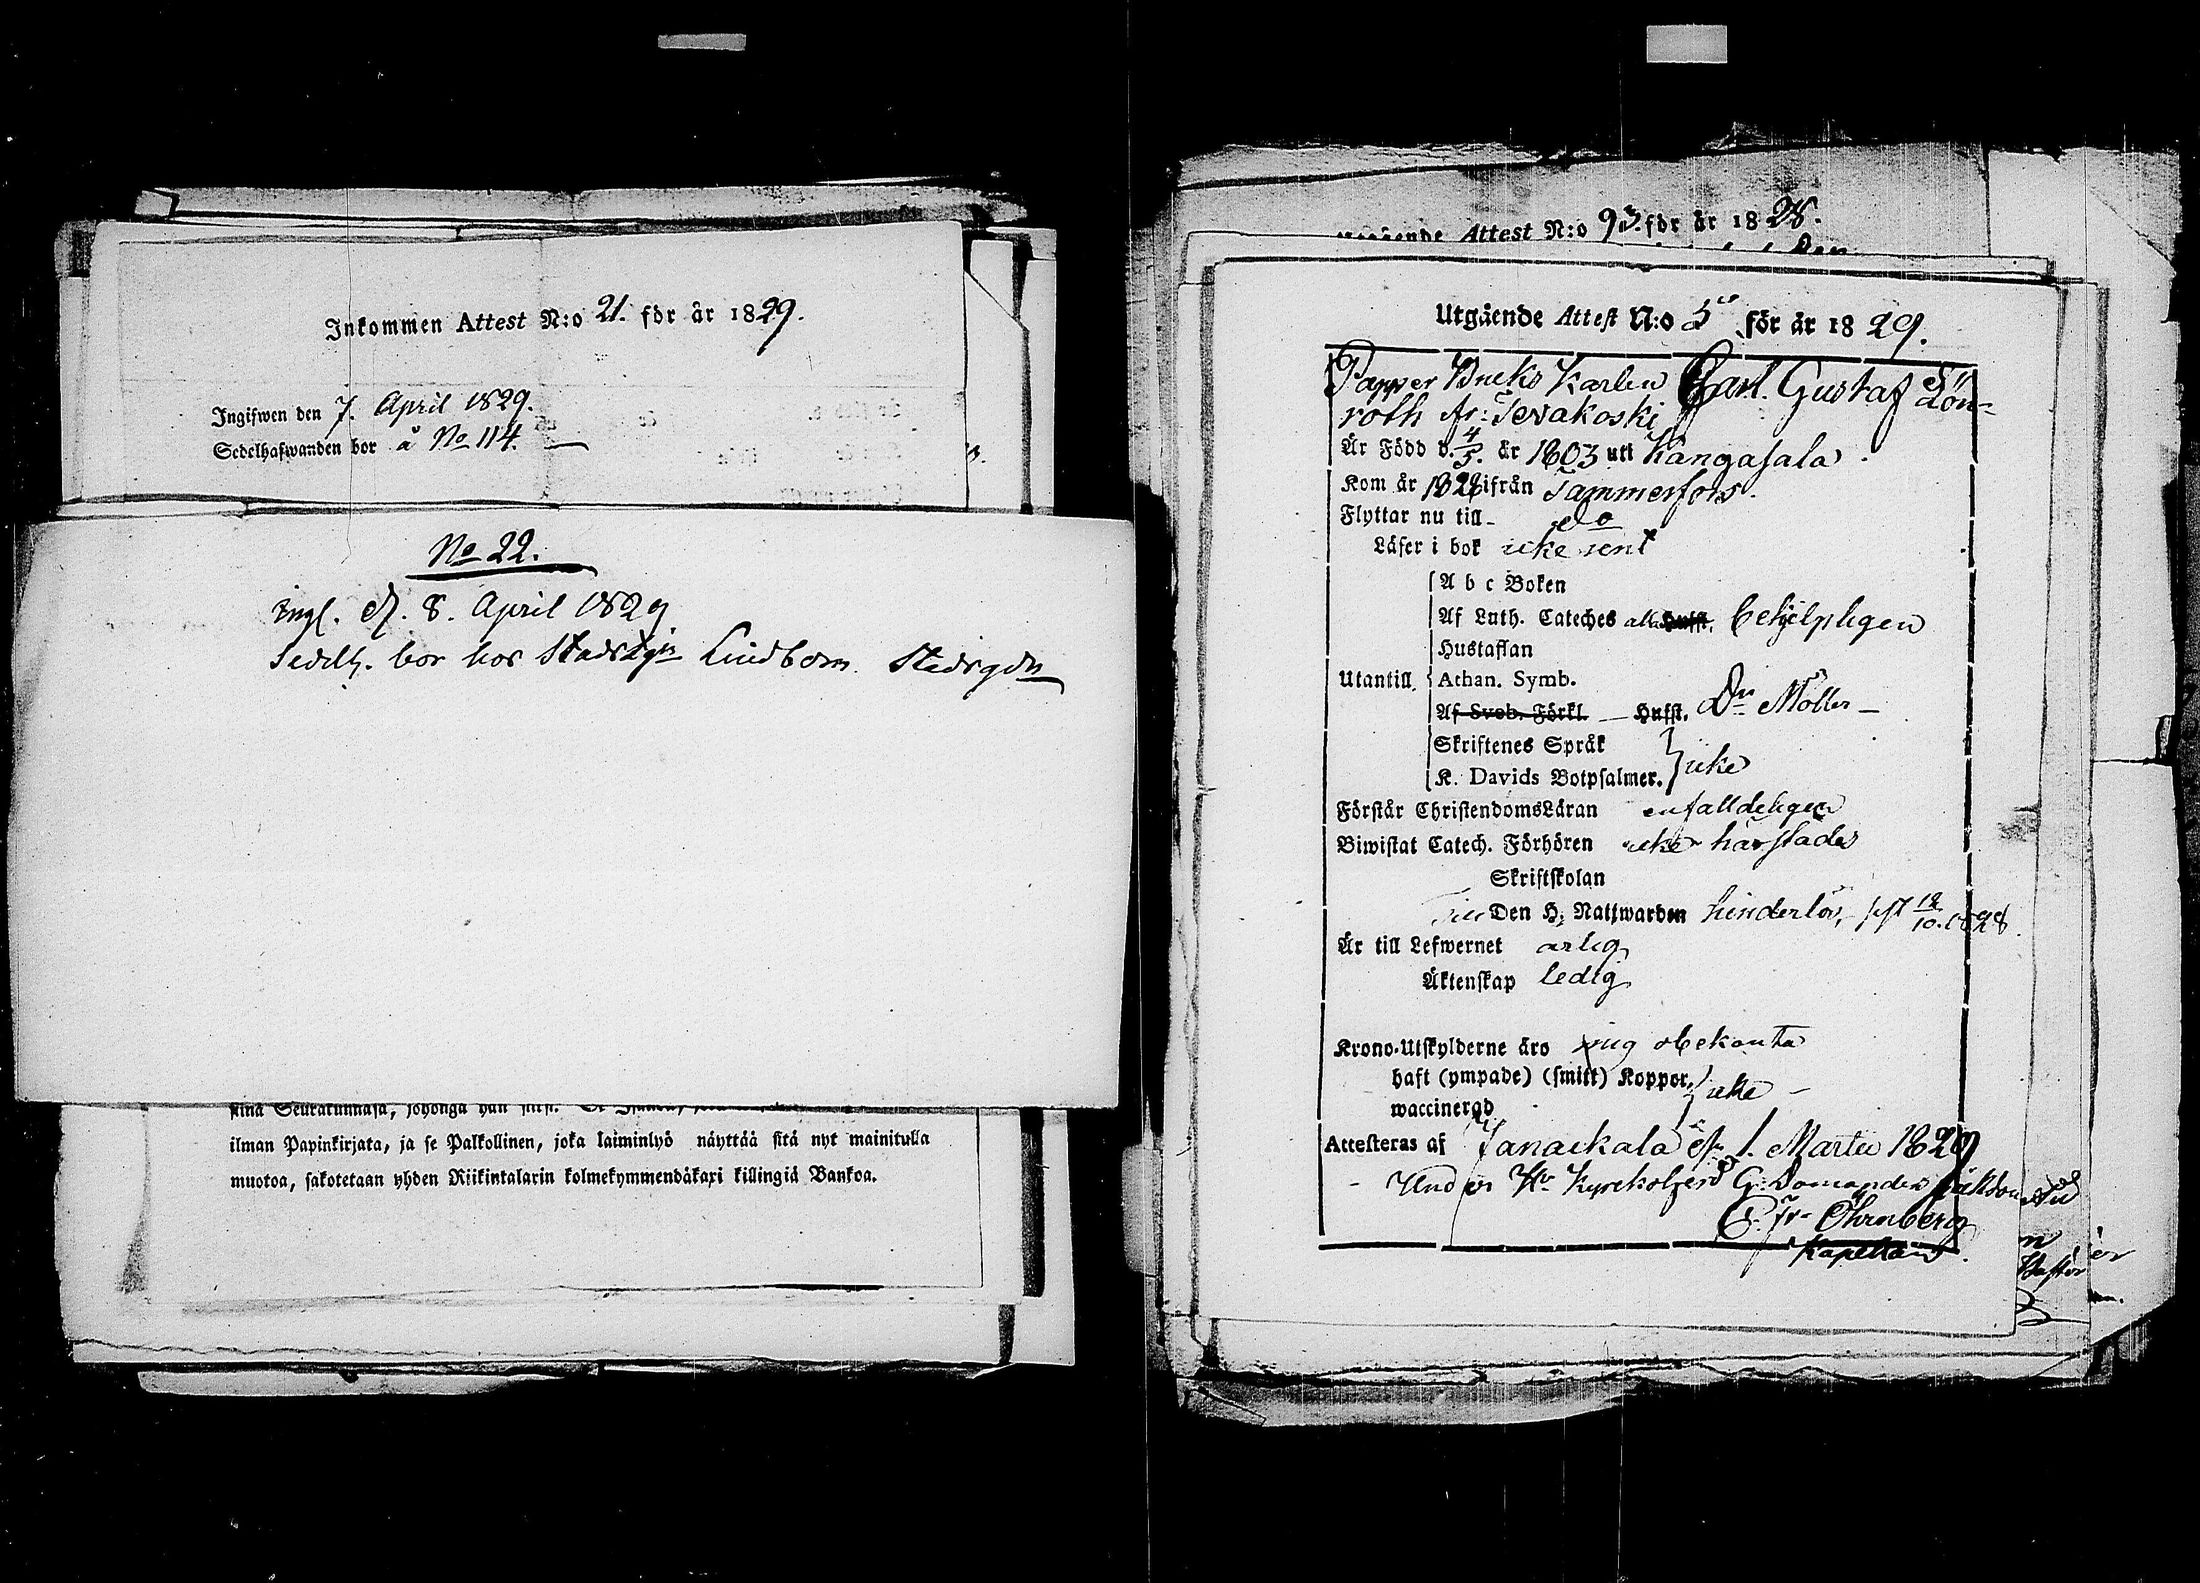 Inkommen Attest N:o 21. för år 1829.
Ingifwen den 7. April 1829.
Sedelhafwanden bor å No 114.
No 22.
Ingl. d. 8. April 1829
Sedelh. bor hos Lindbom
ilman Papinkirjata, ja se Palkollinen, joka laiminlyö näyttää sitä nyt mainitulla
muotoa, sakotetaan yhden Riikintalarin kolmekymmendäkaxi killingiä Bankoa.
Utgående Attest N:o 93. för år 1828.
Utgående Attest N:o 5 för år 1829.
Papper Bruks Karlen Carl Gustaf Lön-
roth fr: Tervakoski
Är Född d. 4/5. år 1803 uti Kangasala.
Kom år 1828 ifrån Tammerfors.
Flyttar nu till do
Läser i bok icke rent
A b c Boken
Af Luth. Cateches alla Hufst. behjelpligen
Hustaflan
Utantill Athan. Symb.
Af Sveb. Förkl. — Hufst. Dr Möller —
Skriftenes Språk
K. Davids Botpsalmer. icke
Förstår ChristendomsLäran enfalldeligen
Biwistat Catech. Förhören icke härstädes
Skriftskolan
Den H. Nattwarden hinderlös, sist 12/10. 1828.
Är till Lefwernet ärlig
Äktenskap ledig
Krono-Utskylderne äro mig obekanta
haft (ympade) (smitt) Koppor,
waccinerad icke —
Attesteras af Janakkala d. 1. Martii 1829
Under Hr Kyrkoherd G: Domanders
P. Fr. Öhrnberg
Kapellan.